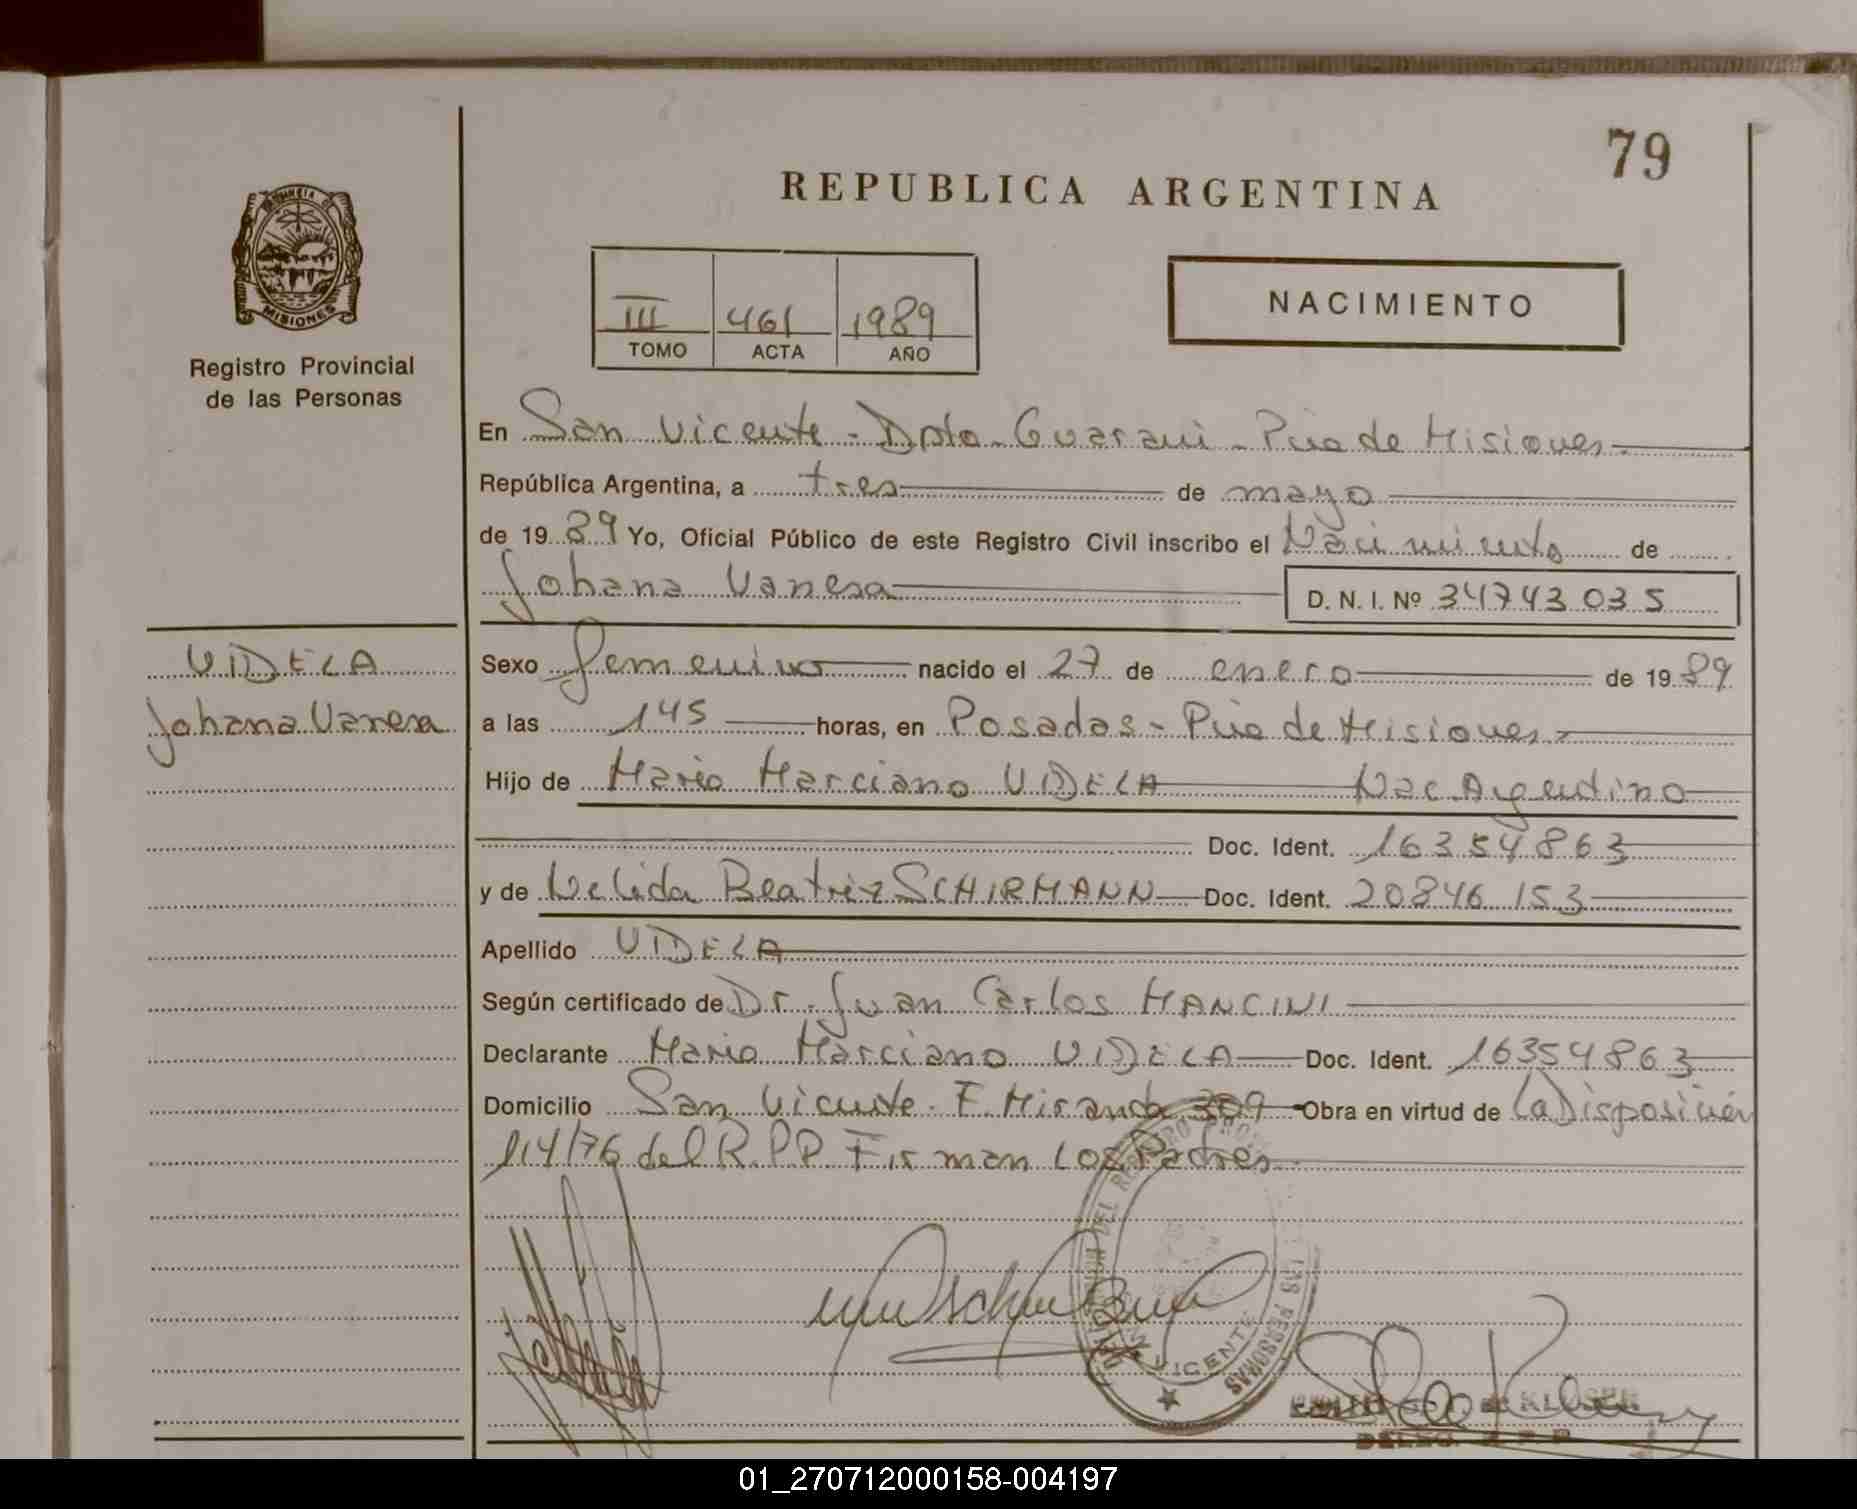 79
REPUBLICA ARGENTINA
PROVINCIA DE
MISIONES
Registro Provincial
de las Personas
III 461 1989
TOMO ACTA AÑO
NACIMIENTO
En San Vicente - Dpto - Guarani - Pcia de Misiones
República Argentina, a tres de mayo
de 1989 Yo, Oficial Público de este Registro Civil inscribo el Nacimiento de
Johana Vanesa D. N. I. Nº 34743035
VIDELA
Johana Vanesa
Sexo femenino nacido el 27 de enero de 1989
a las 145 horas, en Posadas - Pcia de Misiones
Hijo de Mario Marciano VIDELA Nac Argentino
Doc. Ident. 16354863
y de Nelida Beatriz SCHIRMANN Doc. Ident. 20846153
Apellido VIDELA
Según certificado de Dr. Juan Carlos MANCINI
Declarante Mario Marciano VIDELA Doc. Ident. 16354863
Domicilio San Vicente. F. Miranda 309 Obra en virtud de la Disposición
114/76 del R.P.P. Firman los Padres
DEL REGISTRO LAS PERSONAS
VICENTE
KLUSER
01_270712000158-004197